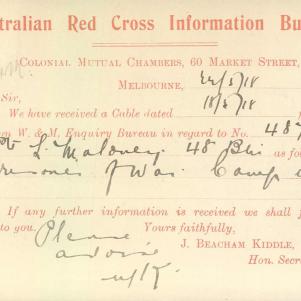 tralian Red Cross Information Bu
COLONIAL MUTUAL CHAMBERS, 60 MARKET STREET,
MELBOURNE, 24/5/18
Sir,
We have received a Cable dated 18/5/18
m W. & M. Enquiry Bureau in regard to No. 48
L. Maloney 48 Bn as fo
risoner of War Camp
If any further information is received we shall f
to you. Yours faithfully,
Please
advise
J. BEACHAM KIDDLE,
Hon. Secre